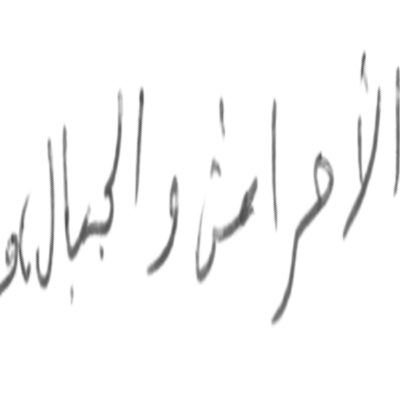 الأحراش والجبال، و